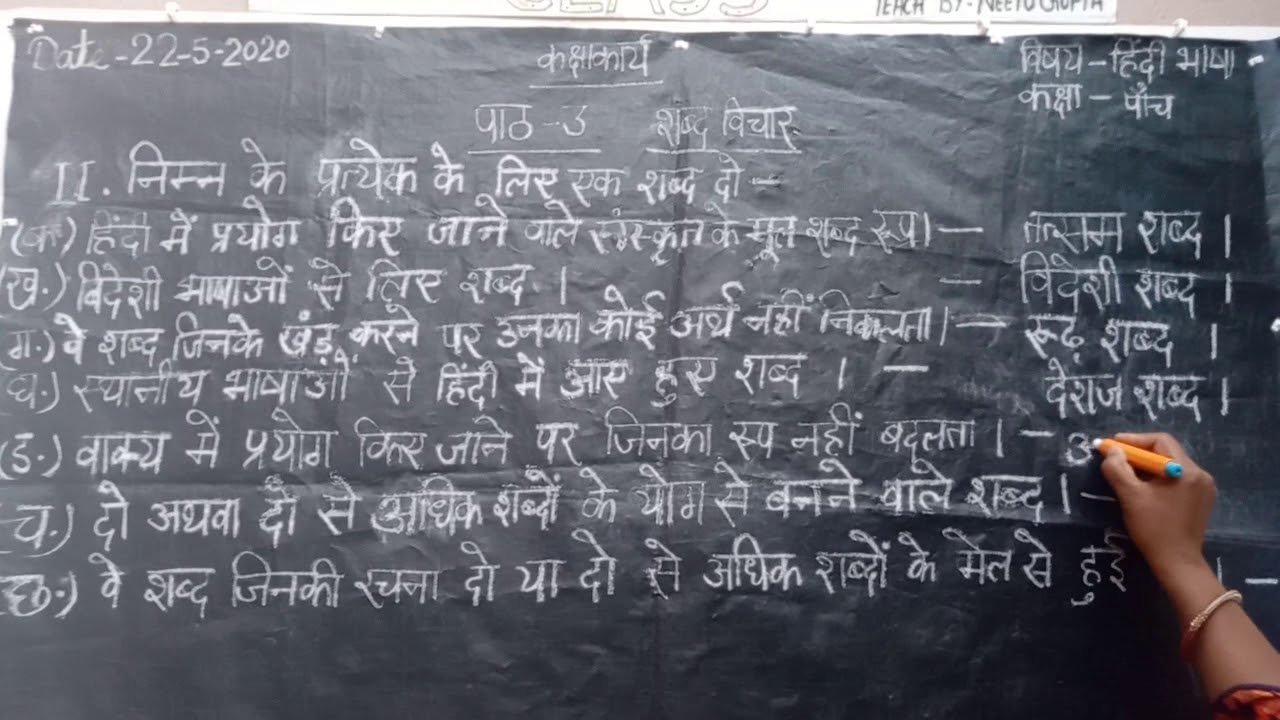 TEACH BY-NEETU GUPTA
Date-22-5-2020
कक्षाकार्य
विषय-हिंदी भाषा
कक्षा - पाँच
पाठ-3 शब्द विचार
II. निम्न के प्रत्येक के लिए एक शब्द दो -
(क.) हिंदी में प्रयोग किए जाने वाले संस्कृत के मूल शब्द रूप। - तत्सम शब्द।
(ख.) विदेशी भाषाओं से लिए शब्द। - विदेशी शब्द।
(ग.) वे शब्द जिनके खंड करने पर उनका कोई अर्थ नहीं निकलता। - रूढ़ शब्द।
(घ.) स्थानीय भाषाओं से हिंदी में आए हुए शब्द। - देशज शब्द।
(ङ.) वाक्य में प्रयोग किए जाने पर जिनका रूप नहीं बदलता। -
(च.) दो अथवा दो से अधिक शब्दों के योग से बनने वाले शब्द। -
(छ.) वे शब्द जिनकी रचना दो या दो से अधिक शब्दों के मेल से हुई । -